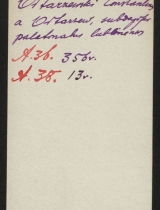 Ostarzewski Constantinus
a Ostarzew, subdapifer
palatinalis lublinensis
A.36. 356v.
A.38. 13v.